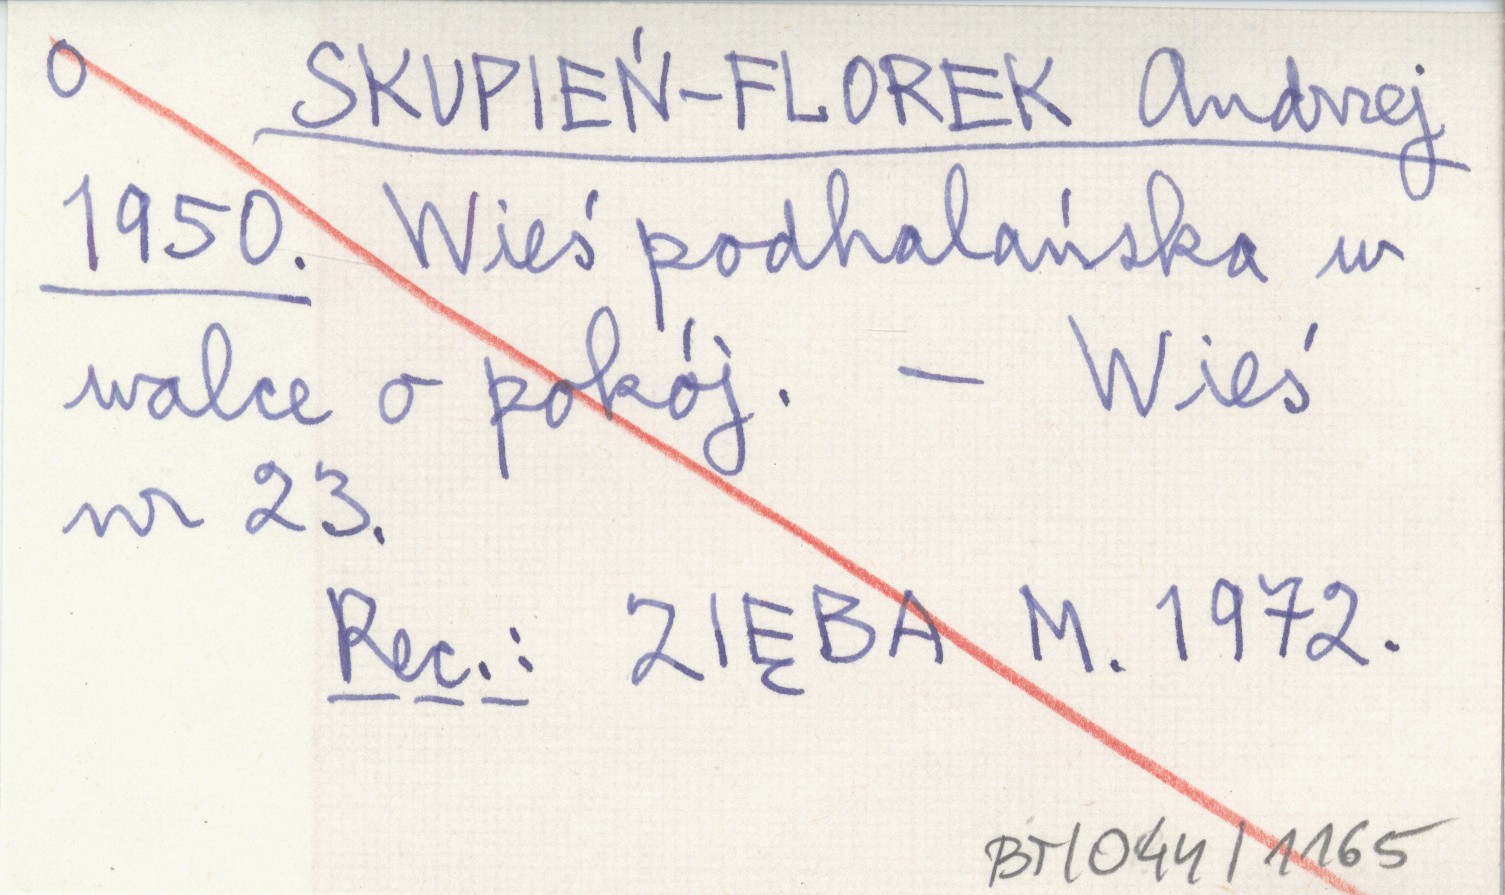 O SKUPIEŃ-FLOREK Andrzej
1950. Wieś podhalańska w
walce o pokój. — Wieś
nr 23.
Rec.: ZIĘBA M. 1972.
BT/044/1165